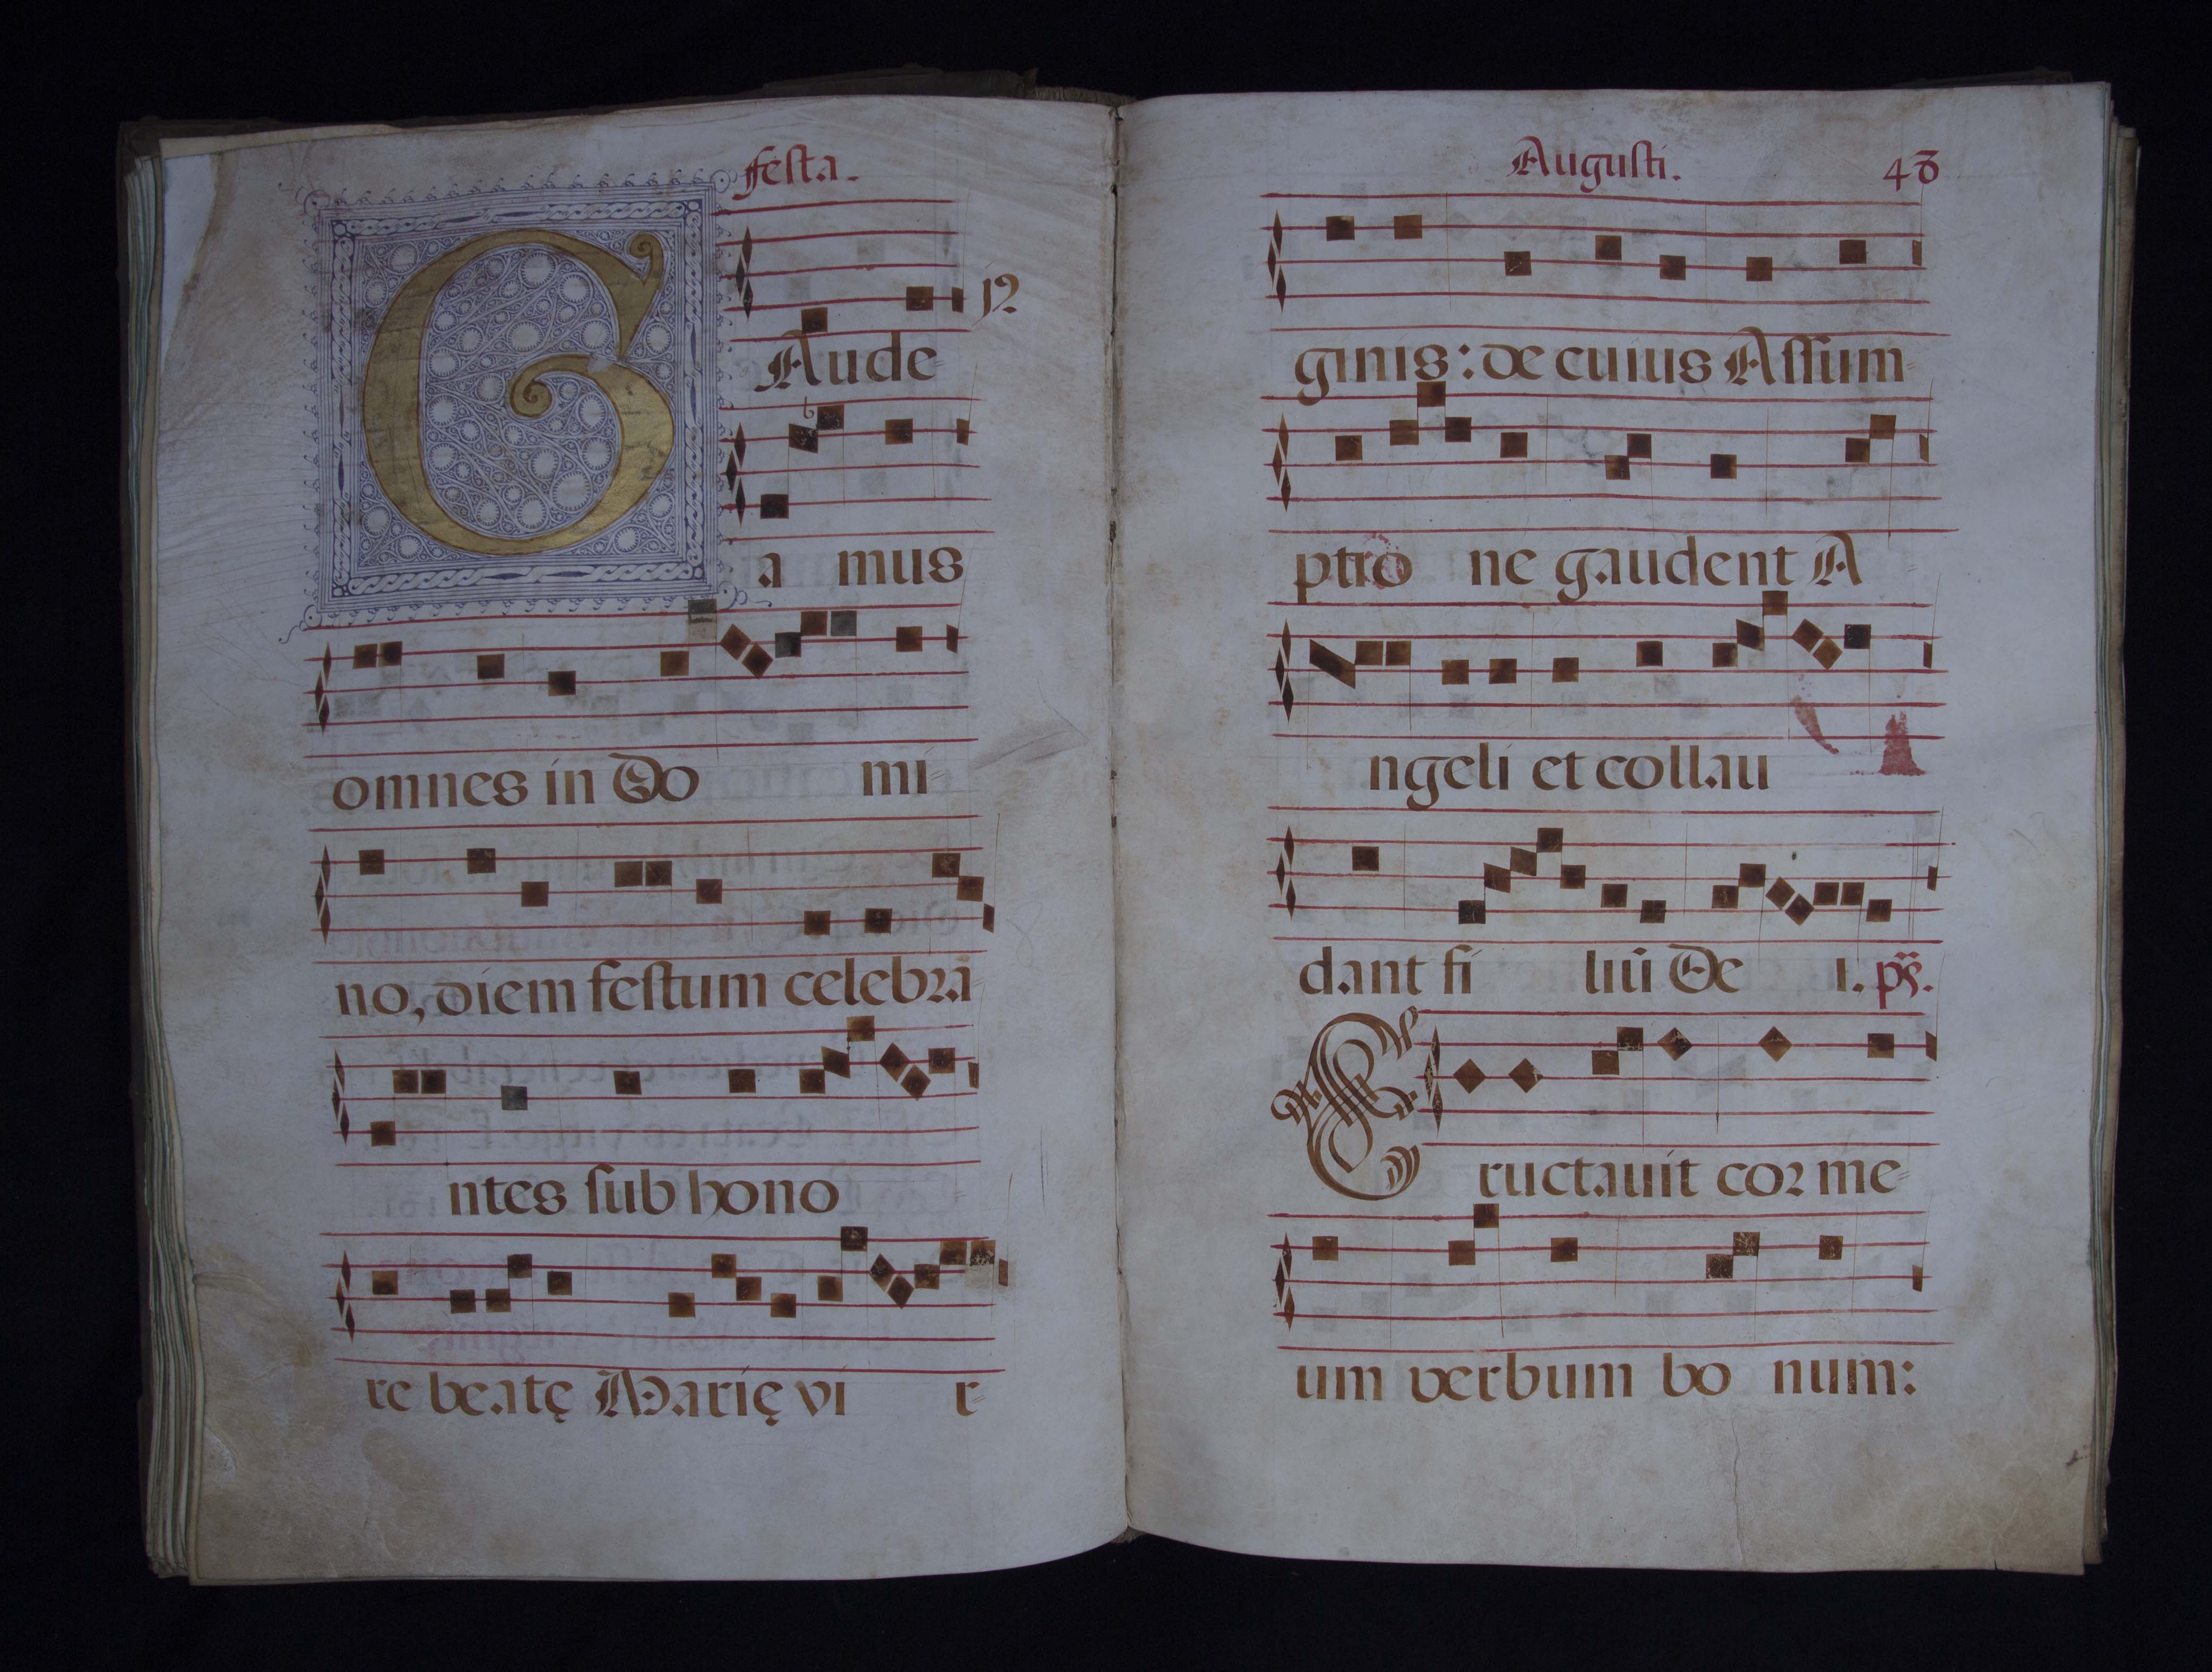 festa.
G
Aude=
a mus
omnes in Do mi=
no, diem festum celebra
ntes sub hono
re beatę Marię vi r=
Augusti. 48
ginis: de cuius Assum
ptio ne gaudent A
ngeli et collau
dant fi liū De i. ps.
Eructauit cor me=
um verbum bo num: